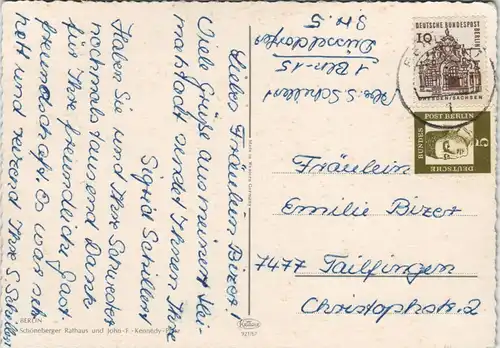 Liebes Fräulein Bizer!
Viele Grüße aus meiner Hei-
matstadt sendet Ihnen Ihre
Sigrid Schillert
Haben Sie und Ihre Schwester
nochmals tausend Dank
für Ihre freundliche Gast-
freundschaft. Es war sehr
nett und reizend Ihre S. Schillert
BERLIN
Schöneberger Rathaus und John-F.-Kennedy-Platz
Abs: S. Schillert
1 Bln-15
Düsseldorfer
Str. 5
DEUTSCHE BUNDESPOST
BERLIN
10
DRESDEN/SACHSEN
DEUTSCHE
BUNDES
POST BERLIN
5
Fräulein
Emilie Bizer
7477 Tailfingen
Christophstr. 2